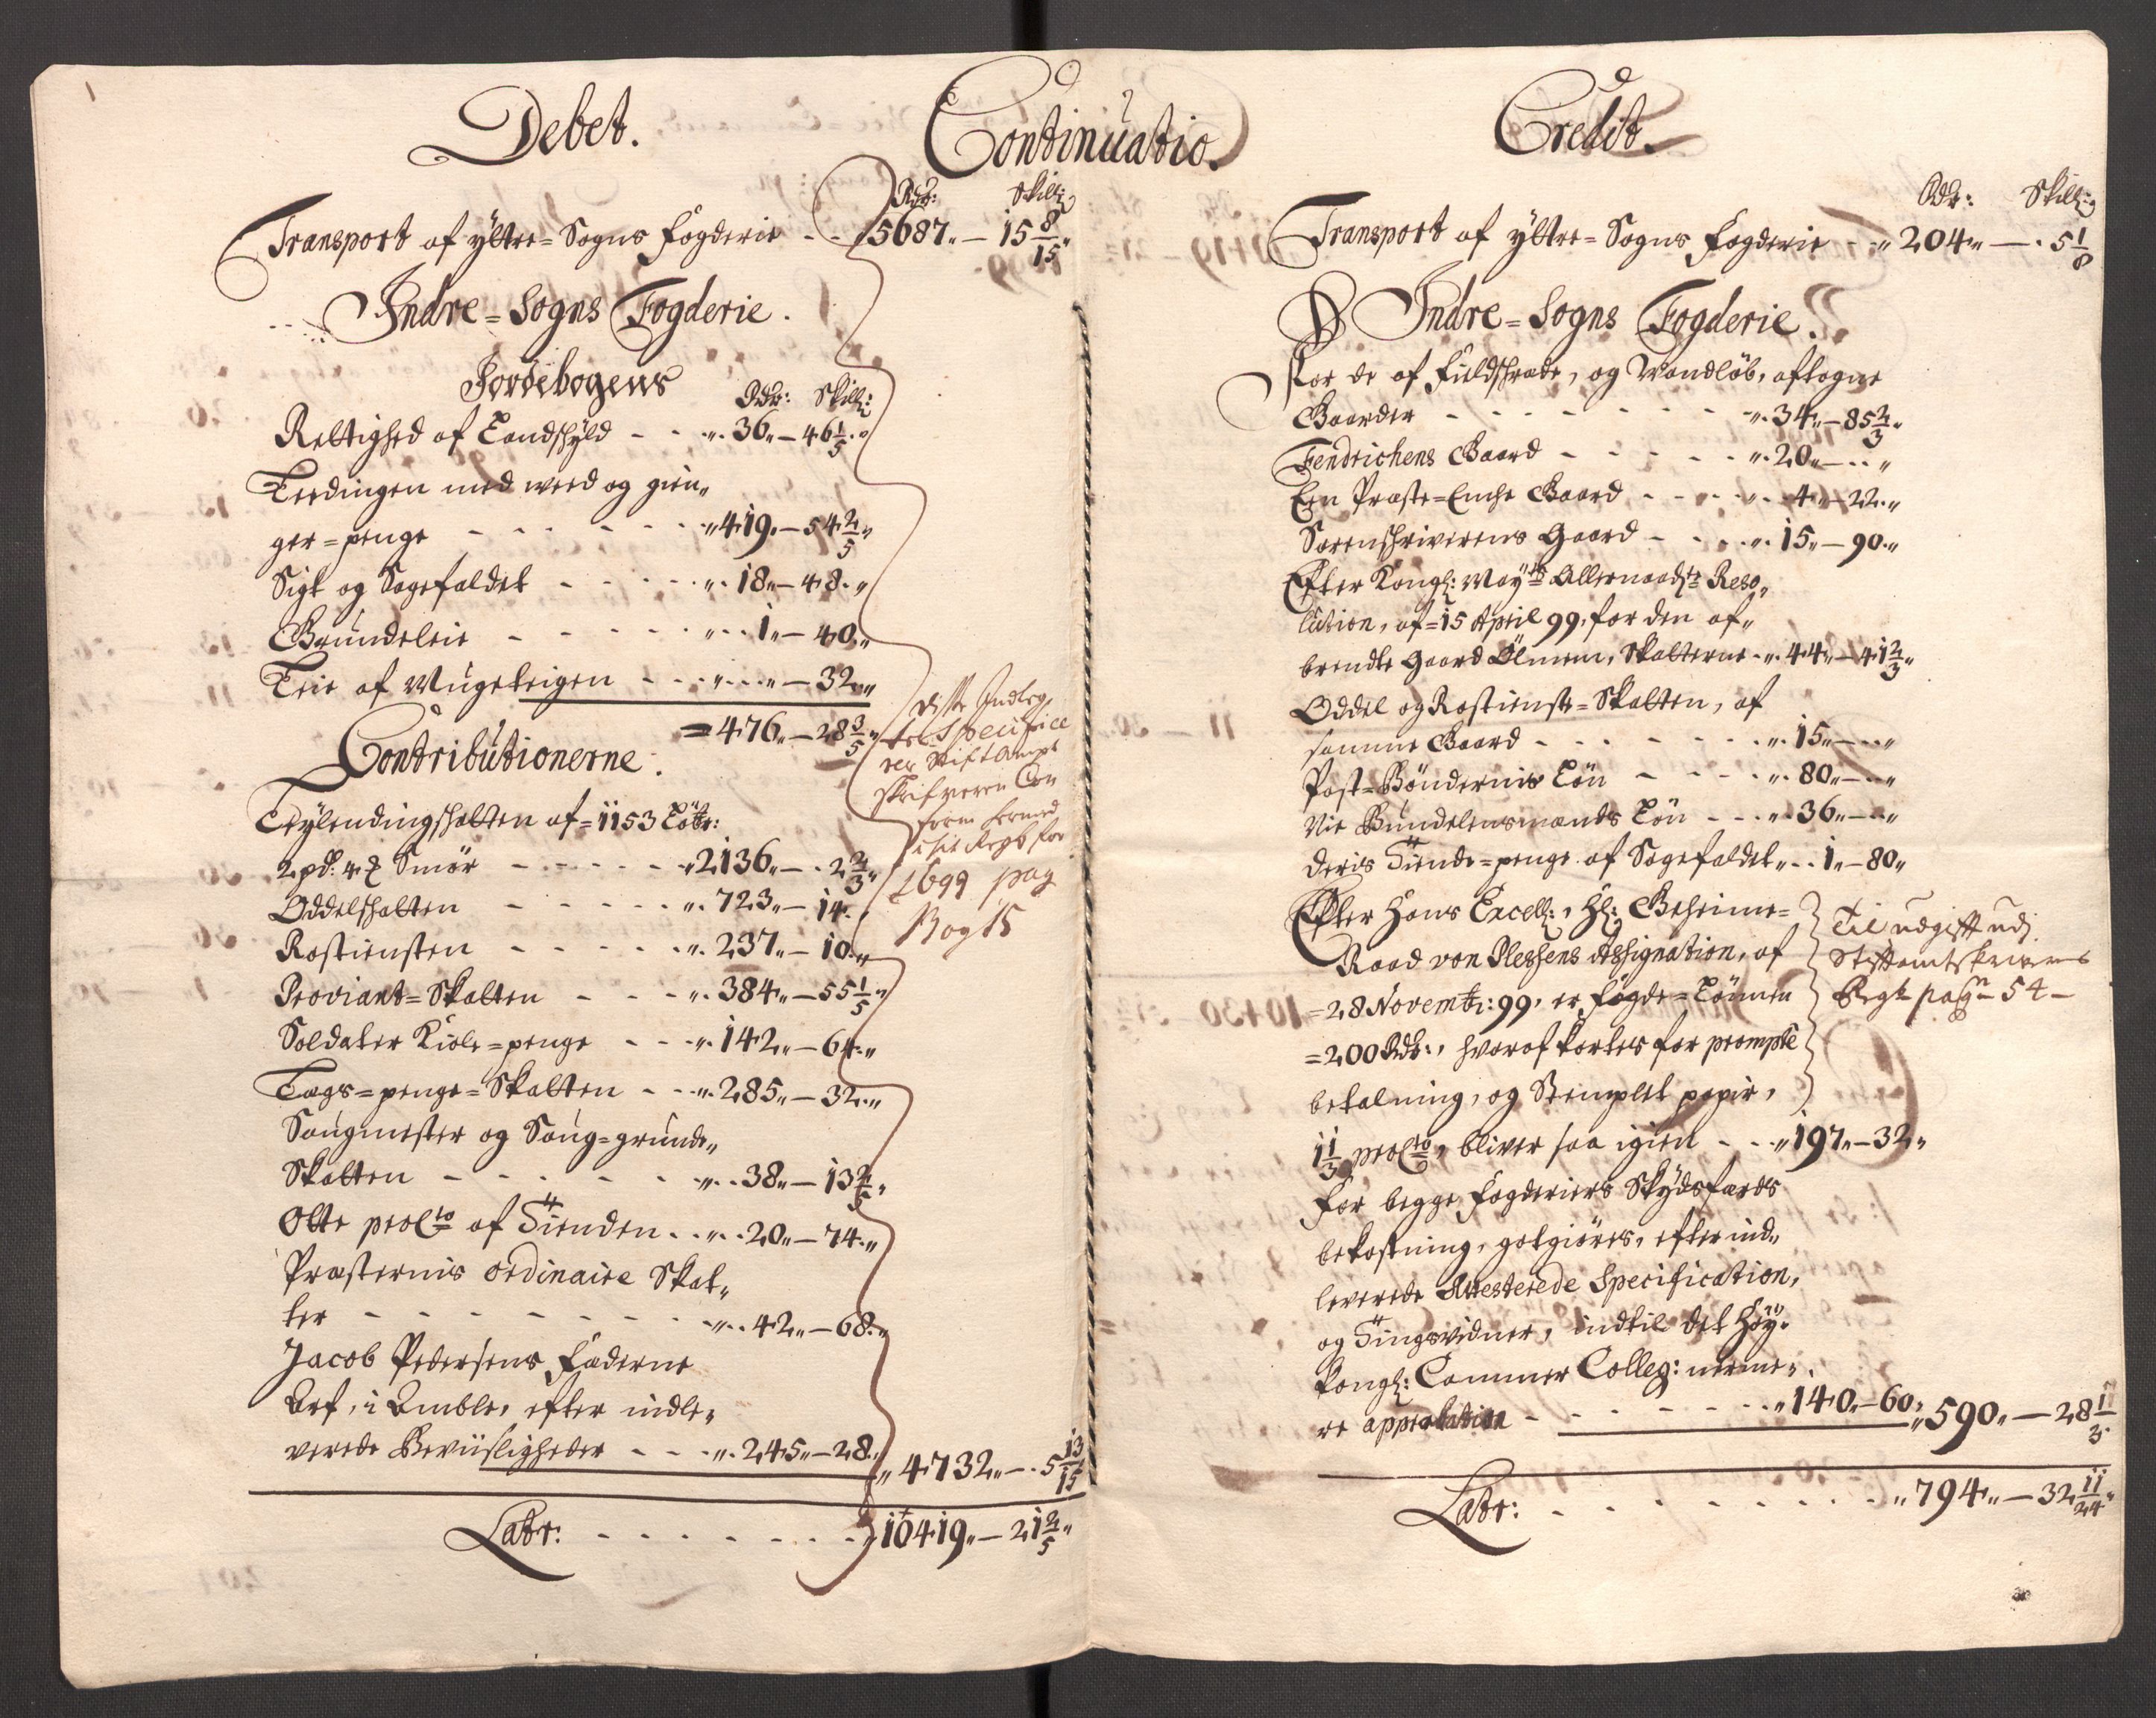 Debet.
Continuatio.
Rdr: Skill:
Transport af yttre=Sogns Fogderie - - 5687„ — 15 8/15„
Indre=Sogns Fogderie.
Jordebogens Rdr: Skill:
Rettighed af Landskyld - - „ 36„ — 46 1/5„
Leedingen med weed og gien„
ger=penge - - - - „ 419„ — 54 2/5„
Sigt og Sagefaldet - - - - „ 18„ — 48„
Grundeleie - - - - „ 1„ — 40„
Leie af - - - „ — 32„
= 476„ — 28 3/5„
Contributionerne.
Leylendingskatten af = 1153 Løbr:
2 pd: 4 Smør - - - - „ 2136„ — 2 2/3„
Oddelskatten - - - - „ 723„ — 14„
Rostiensten - - - - „ 237„ — 10„
Proviant=Skatten - - - „ 384„ — 55 1/5„
Soldater Kiole=penge - - - „ 142„ — 64„
Tags=penge=Skatten - - „ 285„ — 32„
Saugmester og Saug=grunde„
Skatten - - - - „ 38„ — 13 2/5„
Otte proCto af Tienden - - „ 20„ — 74„
Præsternis ordinaire Skat„
ter - - - - - - „ 42„ — 68„
Jacob Pedersens Fæderne
Arf, i Amble, efter indle„
verede Beviisligheder - - - „ 245„ — 28„ „ 4732„ — 5 13/15
Latr: - - - - - - „ 10419„ — 21 2/5„
disse Indtegt
er Specifice
rer Stiftampt
skrifveren Con
form hermed
i sit Regb for
1699 pag
13 og 15
Credit.
Rdr: Skill:
Transport af yttre=Sogns Fogderie - „ 204„ — 5 1/8
Indre=Sogns Fogderie.
For de af Fieldskrede, og Wandløb, aftagne
Gaarder - - - - - - „ 34„ — 85 2/3„
Fendrichens Gaard - - - - „ 20„ — „
Een Præste=Enche Gaard - - - „ 4„ — 22„
Sorenskriverens Gaard - - - „ 15„ — 90„
Efter Kongl: Mayts Allernaadste Reso„
lution, af = 15 April 99, for den af„
brendte gaard Ölmem, Skatterne - „ 44„ — 41 2/3„
Oddel og Rostienste=Skatten, af
samme Gaard - - - - - „ 15„ — „
Post=Bøndernis Løn - - - - „ 80„ — „
Nie Bundelensmænds Løn - - - „ 36„ — „
Deris Tiende=penge af Sagefaldet „ 1„ — 80„
Efter Hans Excell:, Hl: Geheime=
Raad von Plessens Assignation, af
= 28 Novembr: 99, er fogde=Lønnen
= 200 Rdr:, hvoraf kortes for prompte
betalning, og Stemplet papir,
1 1/3 proCto, bliver saa igien - - - „ 197„ — 32„
Til udgifft udj
Stiftamtskrivers
Regsk: pagn 54 —
For begge Fogderiers Skydsfærds
bekostning, gotgiøres, efter ind„
leverede Attesterede Specification,
og Tingsvidner, indtil det Høy„
Kongl: Cammer Colleg: nerme„
re approbation - - - - - „ 140„ — 60„ „ 590„ — 28 1/3
Latr: - - - - - - „ 794„ — 32 11/24„